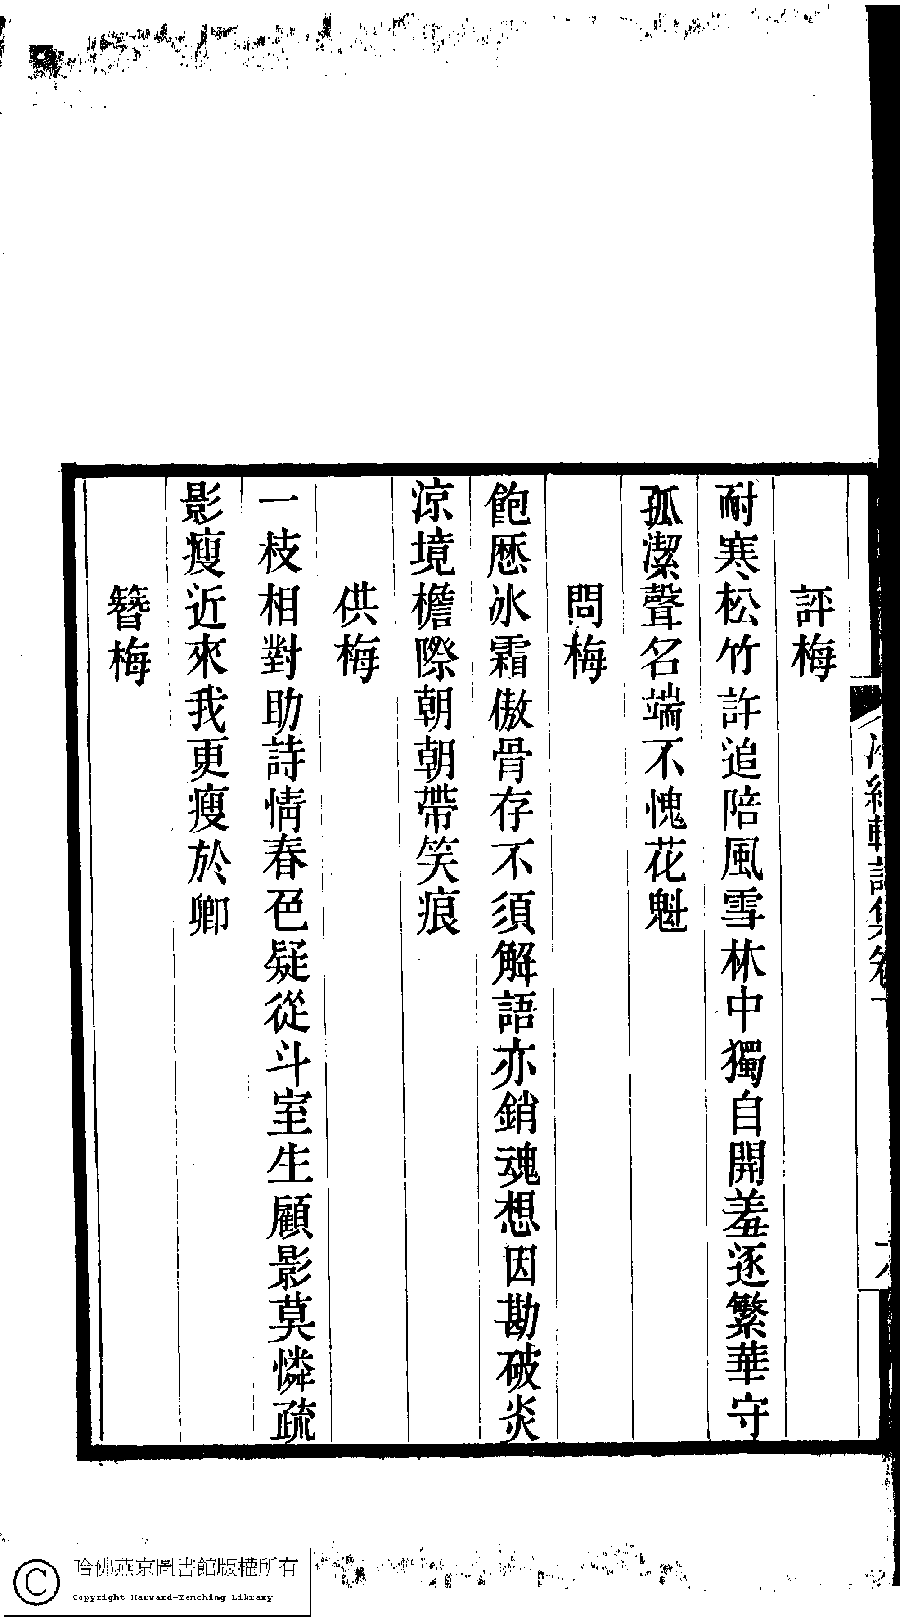 評梅
耐寒松竹許追陪風雪林中獨自開羞逐繁華守
孤潔聲名端不愧花魁
問梅
飽歷冰霜傲骨存不須解語亦銷魂想因勘破炎
涼境檐際朝朝帶笑痕
供梅
一枝相對助詩情春色疑從斗室生顧影莫憐疏
影瘦近來我更瘦於卿
簪梅
哈佛燕京圖書館版權所有
Copyright Harvard-Yenching Library